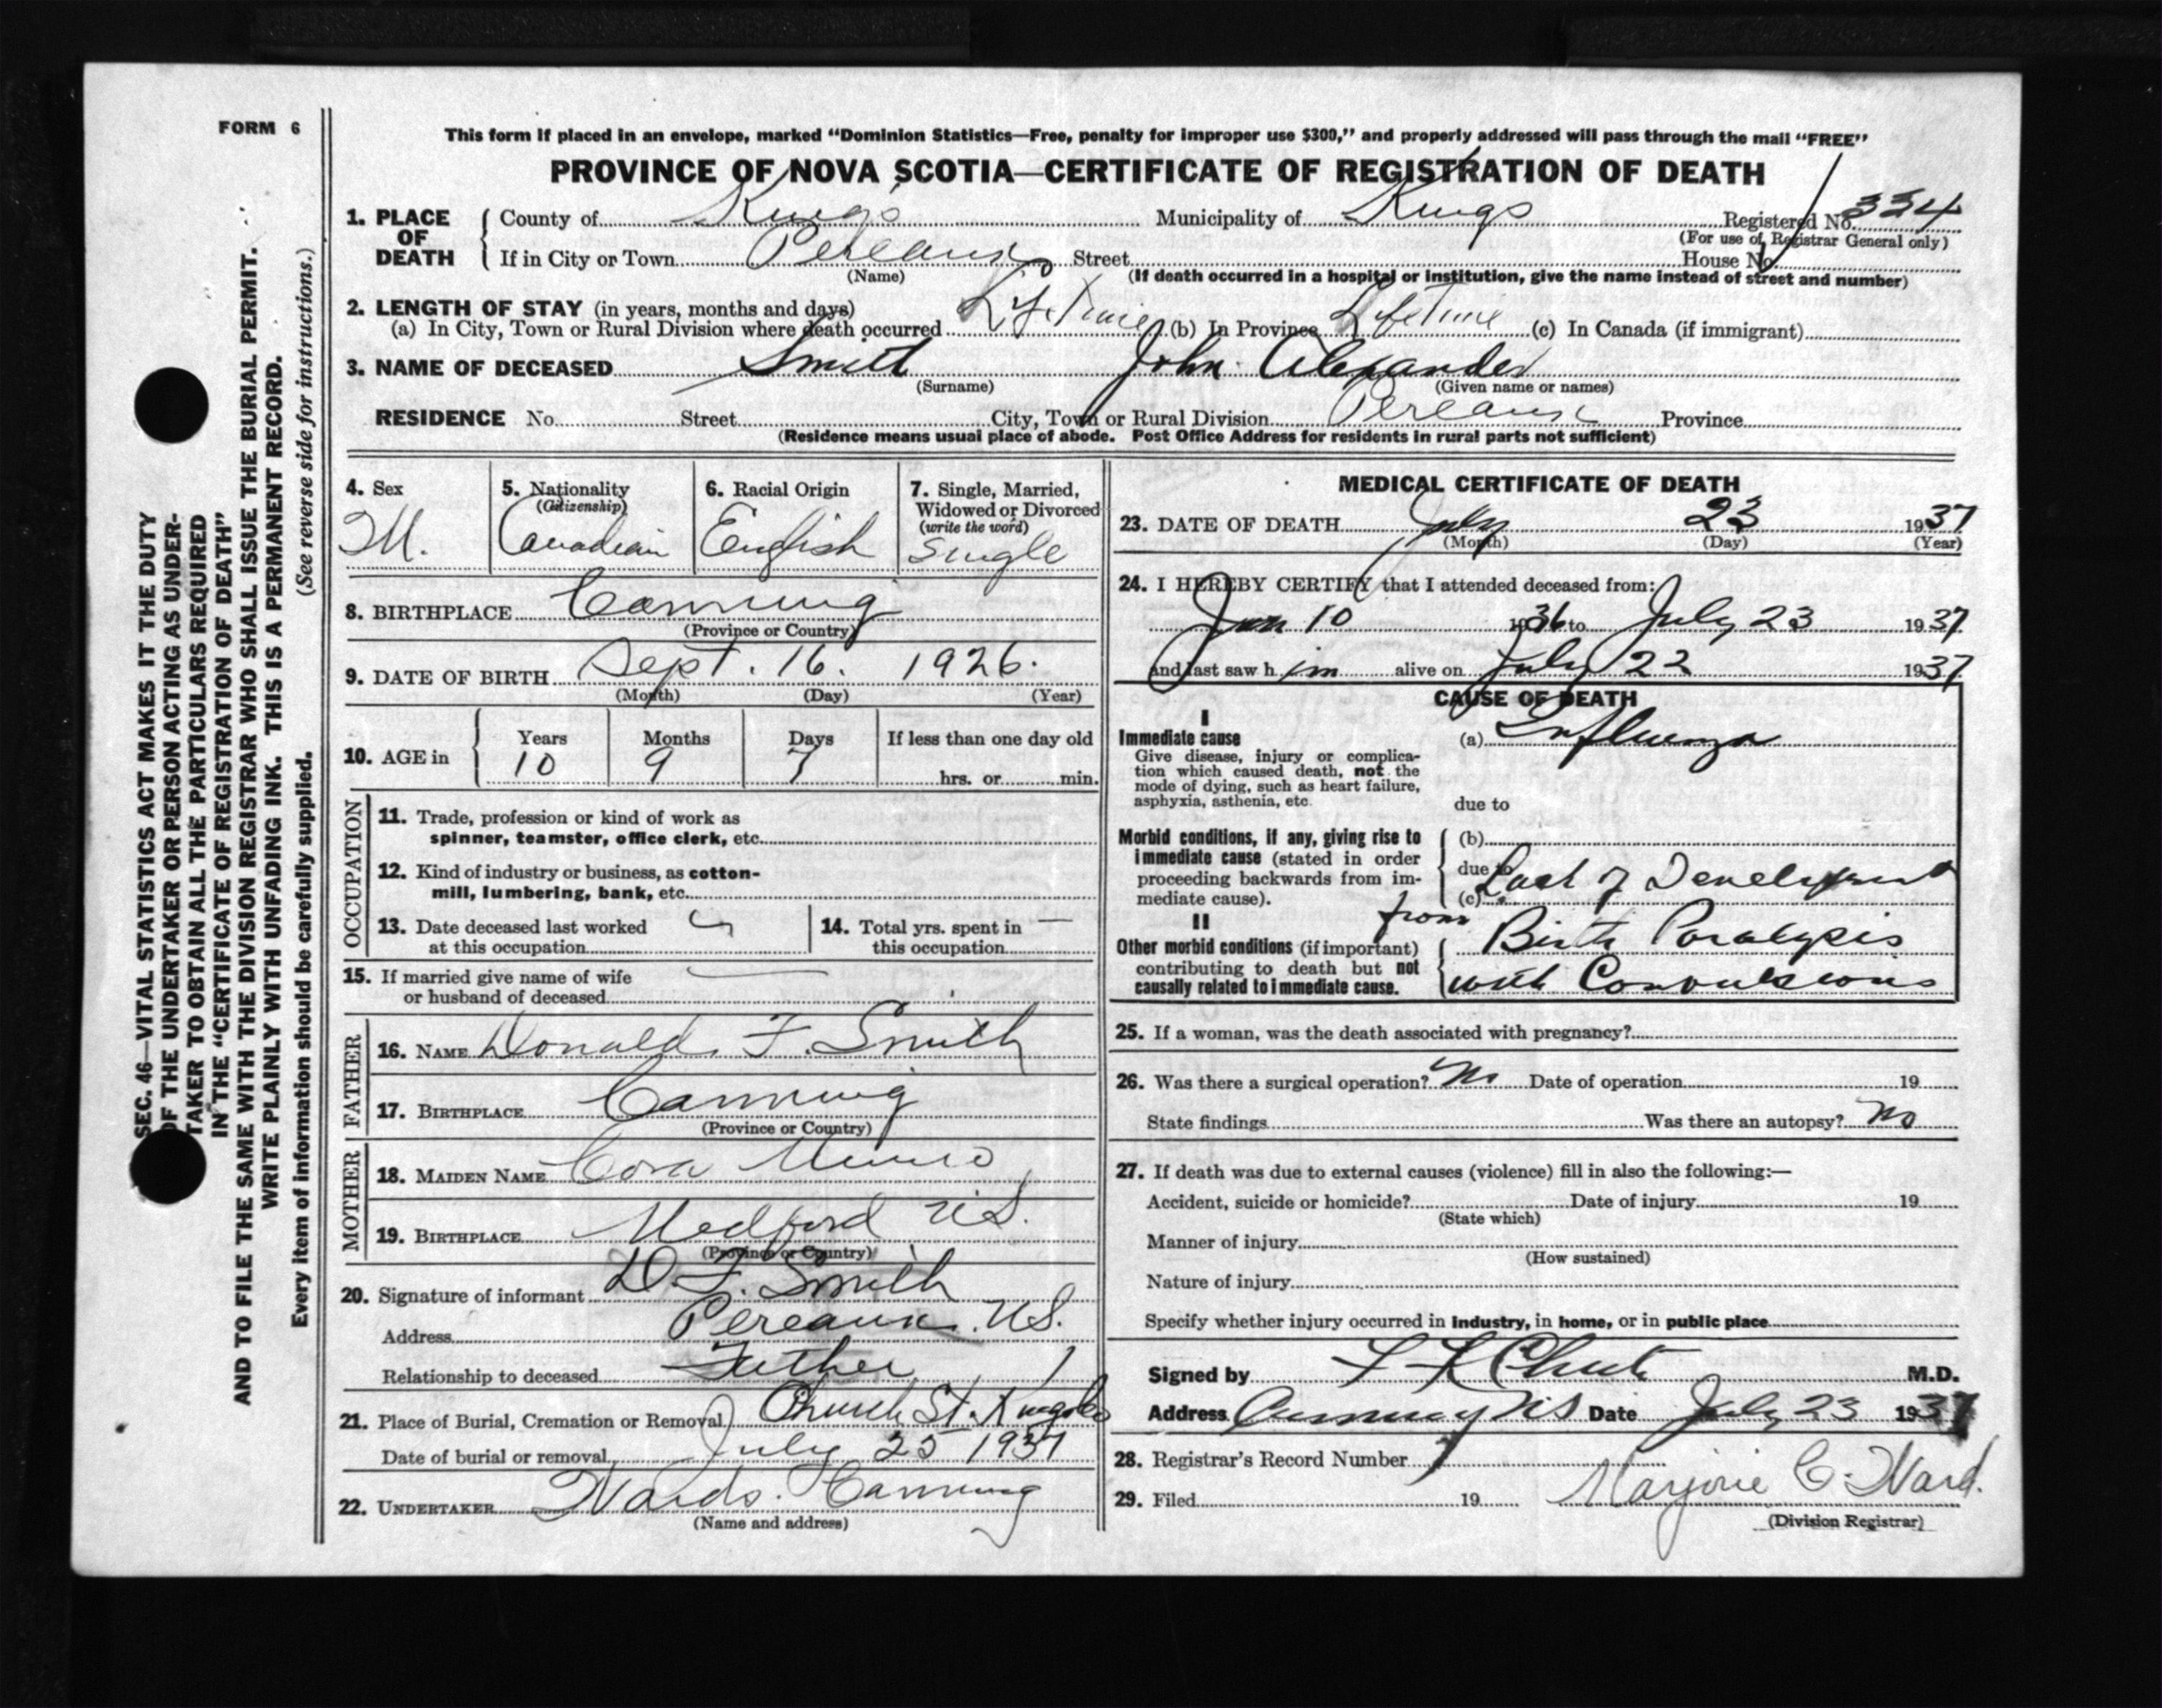 FORM 6
This form if placed in an envelope, marked “Dominion Statistics—Free, penalty for improper use $300,” and properly addressed will pass through the mail “FREE”
PROVINCE OF NOVA SCOTIA—CERTIFICATE OF REGISTRATION OF DEATH
1. PLACE OF DEATH
County of Kings Municipality of Kings Registered No. 334
(For use of Registrar General only)
If in City or Town Pereaux Street House No.
(Name) (If death occurred in a hospital or institution, give the name instead of street and number)
2. LENGTH OF STAY (in years, months and days)
(a) In City, Town or Rural Division where death occurred Life Time (b) In Province Life Time (c) In Canada (if immigrant)
3. NAME OF DECEASED Smith John Alexander
(Surname) (Given name or names)
RESIDENCE No. Street City, Town or Rural Division Pereaux Province
(Residence means usual place of abode. Post Office Address for residents in rural parts not sufficient)
4. Sex
M.
5. Nationality
(Citizenship)
Canadian
6. Racial Origin
English
7. Single, Married,
Widowed or Divorced
(write the word)
Single
8. BIRTHPLACE Canning
(Province or Country)
9. DATE OF BIRTH Sept. 16. 1926.
(Month) (Day) (Year)
10. AGE in
Years Months Days If less than one day old
10 9 7 hrs. or min.
OCCUPATION
11. Trade, profession or kind of work as
spinner, teamster, office clerk, etc.
12. Kind of industry or business, as cotton-
mill, lumbering, bank, etc.
13. Date deceased last worked
at this occupation
14. Total yrs. spent in —
this occupation
15. If married give name of wife —
or husband of deceased
FATHER
16. NAME Donald F. Smith
17. BIRTHPLACE Canning
(Province or Country)
MOTHER
18. MAIDEN NAME Cora Munro
19. BIRTHPLACE Medford N.S.
(Province or Country)
20. Signature of informant D. F. Smith
Address Pereaux. N.S.
Relationship to deceased Father
21. Place of Burial, Cremation or Removal Church St. Kings Co
Date of burial or removal July 25 1937
22. UNDERTAKER Wards. Canning
(Name and address)
MEDICAL CERTIFICATE OF DEATH
23. DATE OF DEATH July 23 1937
(Month) (Day) (Year)
24. I HEREBY CERTIFY that I attended deceased from:
Jan 10 1936 to July 23 1937
and last saw h im alive on July 22 1937
CAUSE OF DEATH
I
Immediate cause (a) Influenza
Give disease, injury or complica-
tion which caused death, not the
mode of dying, such as heart failure,
asphyxia, asthenia, etc.
due to
Morbid conditions, if any, giving rise to (b)
immediate cause (stated in order
proceeding backwards from im- due to
mediate cause). (c) Lack of Development
II from
Birth Paralysis
Other morbid conditions (if important)
contributing to death but not
causally related to immediate cause. with Convulsions
25. If a woman, was the death associated with pregnancy?
26. Was there a surgical operation? No Date of operation 19
State findings Was there an autopsy? No
27. If death was due to external causes (violence) fill in also the following:—
Accident, suicide or homicide? Date of injury 19
(State which)
Manner of injury
(How sustained)
Nature of injury
Specify whether injury occurred in industry, in home, or in public place
Signed by F F Chute M.D.
Address Canning NS Date July 23 1937
28. Registrar's Record Number 7
29. Filed 19 Marjorie C. Ward.
(Division Registrar)
SEC. 46—VITAL STATISTICS ACT MAKES IT THE DUTY
OF THE UNDERTAKER OR PERSON ACTING AS UNDER-
TAKER TO OBTAIN ALL THE PARTICULARS REQUIRED
IN THE “CERTIFICATE OF REGISTRATION OF DEATH”
AND TO FILE THE SAME WITH THE DIVISION REGISTRAR WHO SHALL ISSUE THE BURIAL PERMIT.
WRITE PLAINLY WITH UNFADING INK. THIS IS A PERMANENT RECORD.
Every item of information should be carefully supplied. (See reverse side for instructions.)